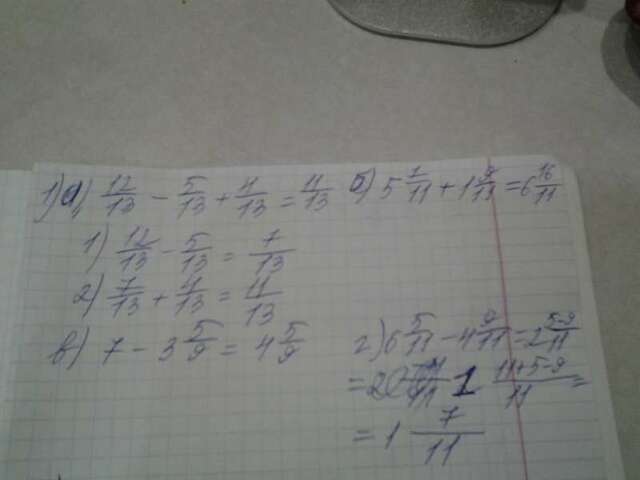 1) а) 12/13 - 5/13 + 4/13 = 11/13
1) 12/13 - 5/13 = 7/13
2) 7/13 + 4/13 = 11/13
в) 7 - 3 5/9 = 4 5/9
б) 5 7/11 + 1 9/11 = 6 16/11
2) 6 5/11 - 4 9/11 = 2 5-9/11
= 1 11+5-9/11 =
= 1 7/11